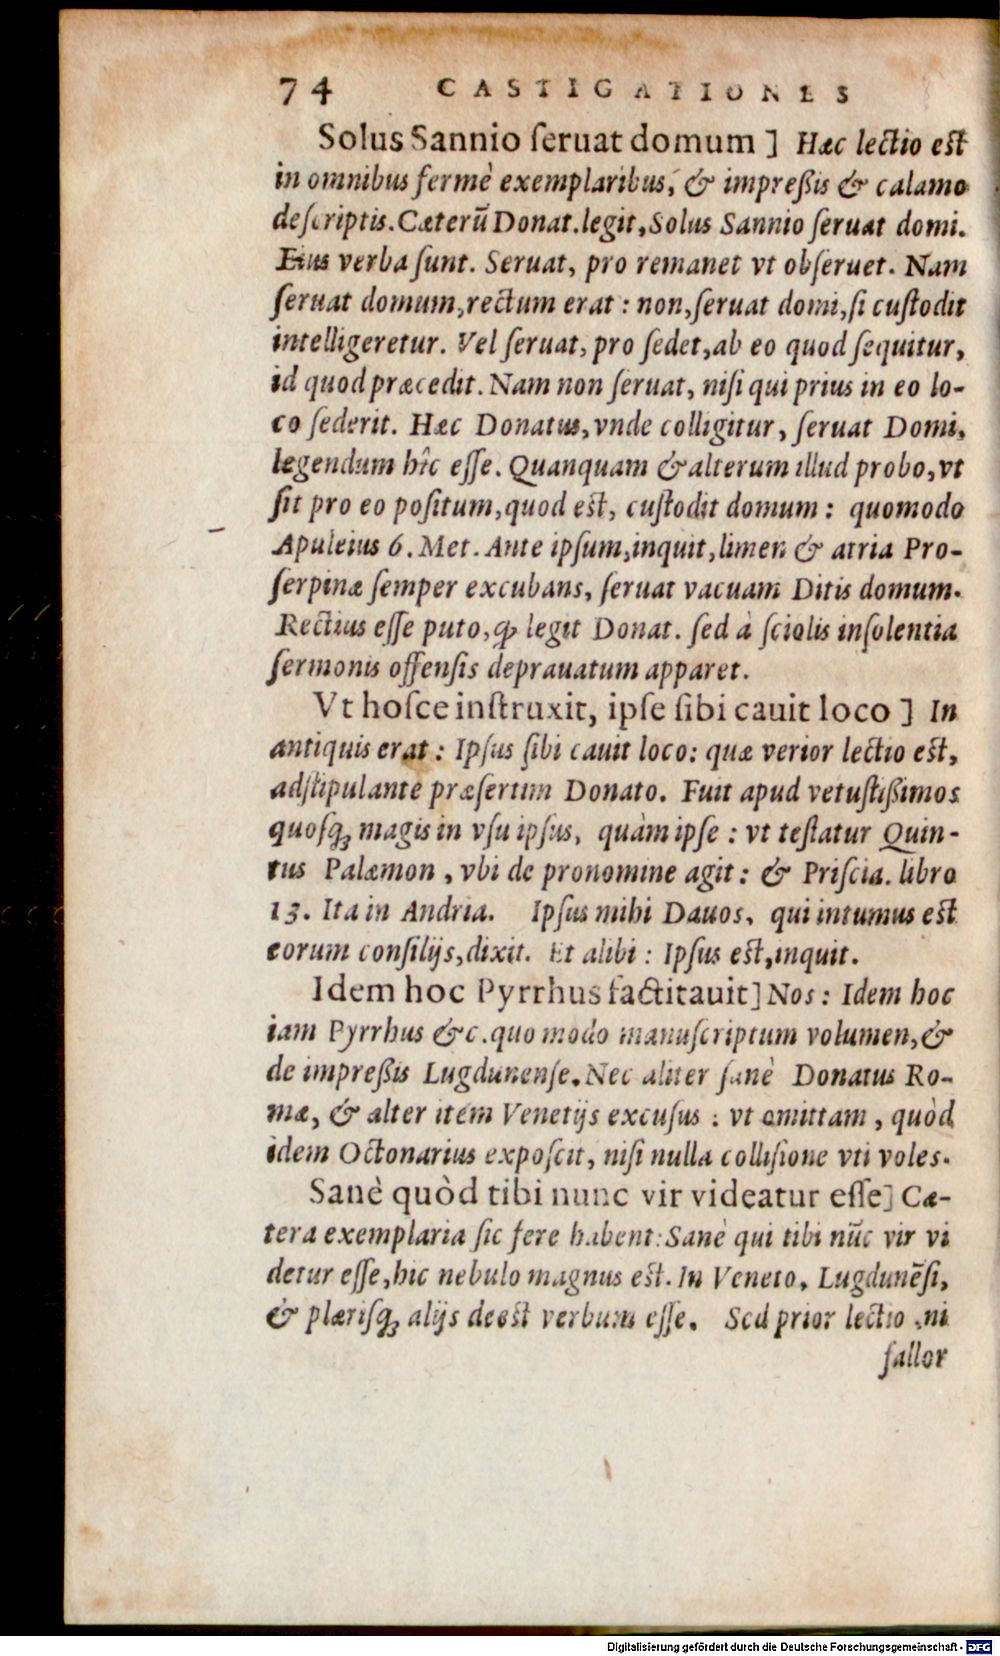 74 CASTIGATIONES
Solus Sannio ſeruat domum ] Hæc lectio eſt
in omnibus fermè exemplaribus, & impreßis & calamo
deſcriptis. Cæterũ Donat. legit, Solus Sannio ſeruat domi.
Eius verba ſunt. Seruat, pro remanet vt obſeruet. Nam
ſeruat domum, rectum erat : non, ſeruat domi, ſi cuſtodit
intelligeretur. Vel ſeruat, pro ſedet, ab eo quod ſequitur,
id quod præcedit. Nam non ſeruat, niſi qui prius in eo lo-
co ſederit. Hæc Donatus, vnde colligitur, ſeruat Domi,
legendum hîc eſſe. Quanquam & alterum illud probo, vt
ſit pro eo poſitum, quod eſt, cuſtodit domum : quomodo
Apuleius 6. Met. Ante ipſum, inquit, limen & atria Pro-
ſerpinæ ſemper excubans, ſeruat vacuam Ditis domum.
Rectius eſſe puto, ꝙ legit Donat. ſed à ſciolis inſolentia
ſermonis offenſis deprauatum apparet.
Vt hoſce inſtruxit, ipſe ſibi cauit loco ] In
antiquis erat : Ipſus ſibi cauit loco: quæ verior lectio eſt,
adſtipulante præſertim Donato. Fuit apud vetuſtißimos
quoſq; magis in vſu ipſus, quàm ipſe : vt teſtatur Quin-
tus Palæmon, vbi de pronomine agit : & Priſcia. libro
13. Ita in Andria. Ipſus mihi Dauos, qui intumus eſt
eorum conſilijs, dixit. Et alibi : Ipſus eſt, inquit.
Idem hoc Pyrrhus factitauit] Nos : Idem hoc
iam Pyrrhus &c. quo modo manuſcriptum volumen, &
de impreßis Lugdunenſe. Nec aliter ſanè Donatus Ro-
mæ, & alter item Venetijs excuſus : vt omittam, quòd
idem Octonarius expoſcit, niſi nulla colliſione vti voles.
Sanè quòd tibi nunc vir videatur eſſe] Cæ-
tera exemplaria ſic fere habent: Sanè qui tibi nũc vir vi
detur eſſe, hic nebulo magnus eſt. In Veneto, Lugdunẽſi,
& plæriſq; alijs deeſt verbum eſſe. Sed prior lectio, ni
fallor
Digitalisierung gefördert durch die Deutsche Forschungsgemeinschaft - DFG